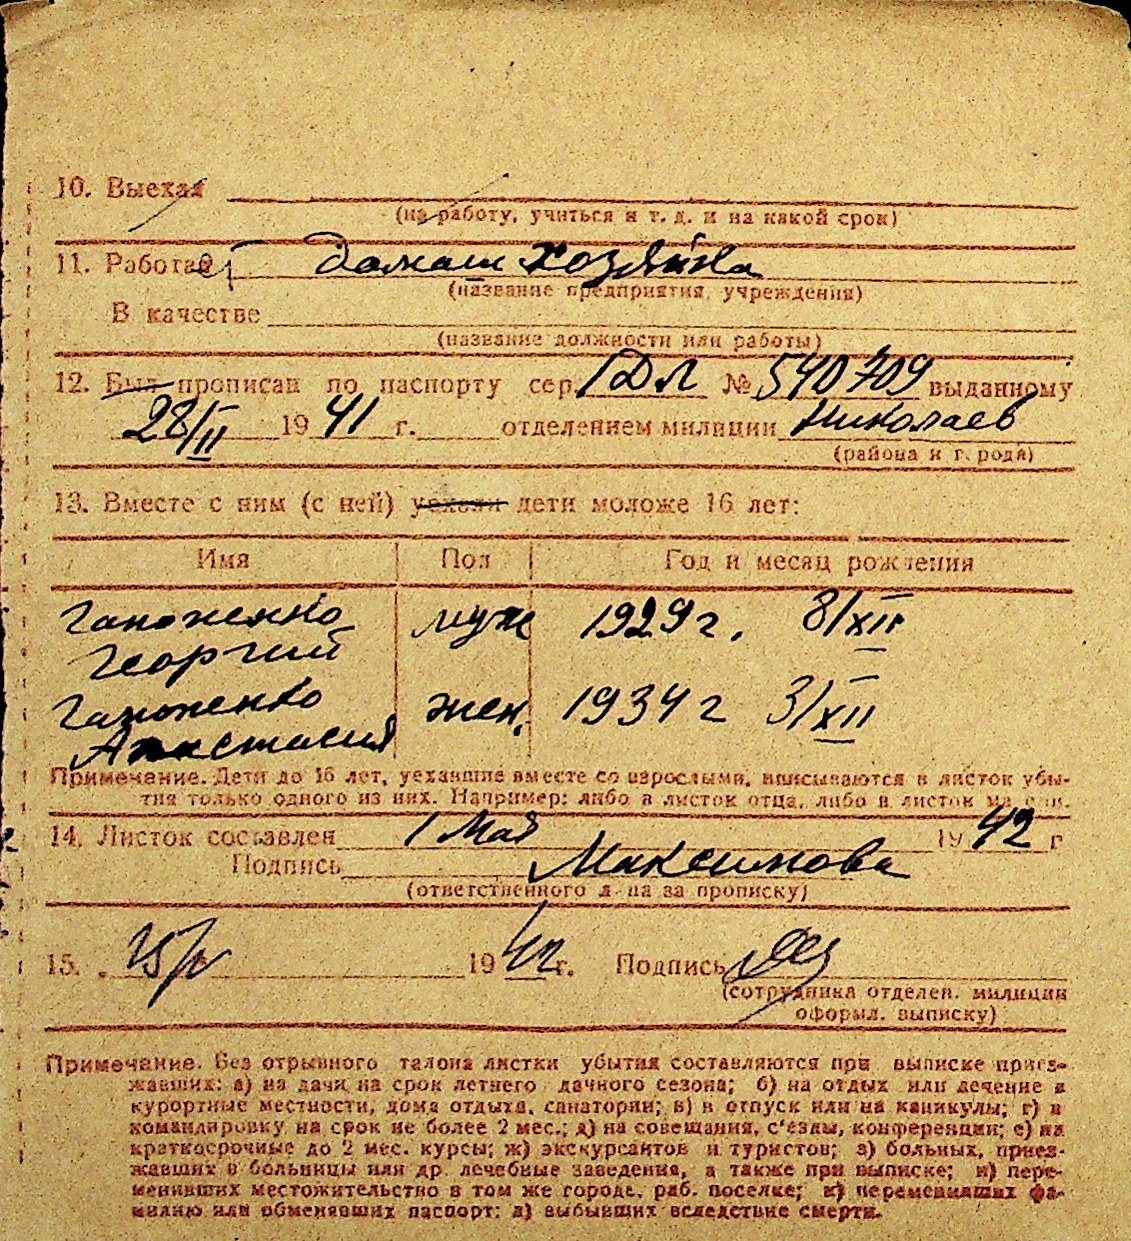 10. Выехал
(на работу, учиться и т. д. и на какой срок)
11. Работает домаш хозяйка
(название предприятия, учреждения)
В качестве
(название должности или работы)
12. Был прописан по паспорту сер. ІДЛ № 540709 выданному
28/II 1941 г. отделением милиции Николаев
(района и города)
13. Вместе с ним (с ней) уехали дети моложе 16 лет:
Имя Пол Год и месяц рождения
Гапоненко муж 1929 г. 8/XII
Георгий
Гапоненко жен. 1934 г 3/XII
Анастасия
Примечание. Дети до 16 лет, уехавшие вместе со взрослыми, вписываются в листок убы-
тия только одного из них. Например: либо в листок отца, либо в листок матери.
14. Листок составлен 1 Мая 1942 г
Подпись Максимова
(ответственного л-ца за прописку)
15. 1942 г. Подпись
(сотрудника отделен. милиции
оформл. выписку)
Примечание. Без отрывного талона листки убытия составляются при выписке приез-
жавших: а) на дачи на срок летнего дачного сезона; б) на отдых или лечение в
курортные местности, дома отдыха, санатории; в) в отпуск или на каникулы; г) в
командировку на срок не более 2 мес.; д) на совещания, с'езды, конференции; е) на
краткосрочные до 2 мес. курсы; ж) экскурсантов и туристов; з) больных, приез-
жавших в больницы или др. лечебные заведения, а также при выписке; и) пере-
менивших местожительство в том же городе, раб. поселке; к) переменивших фа-
милию или обменявших паспорт; л) выбывших вследствие смерти.